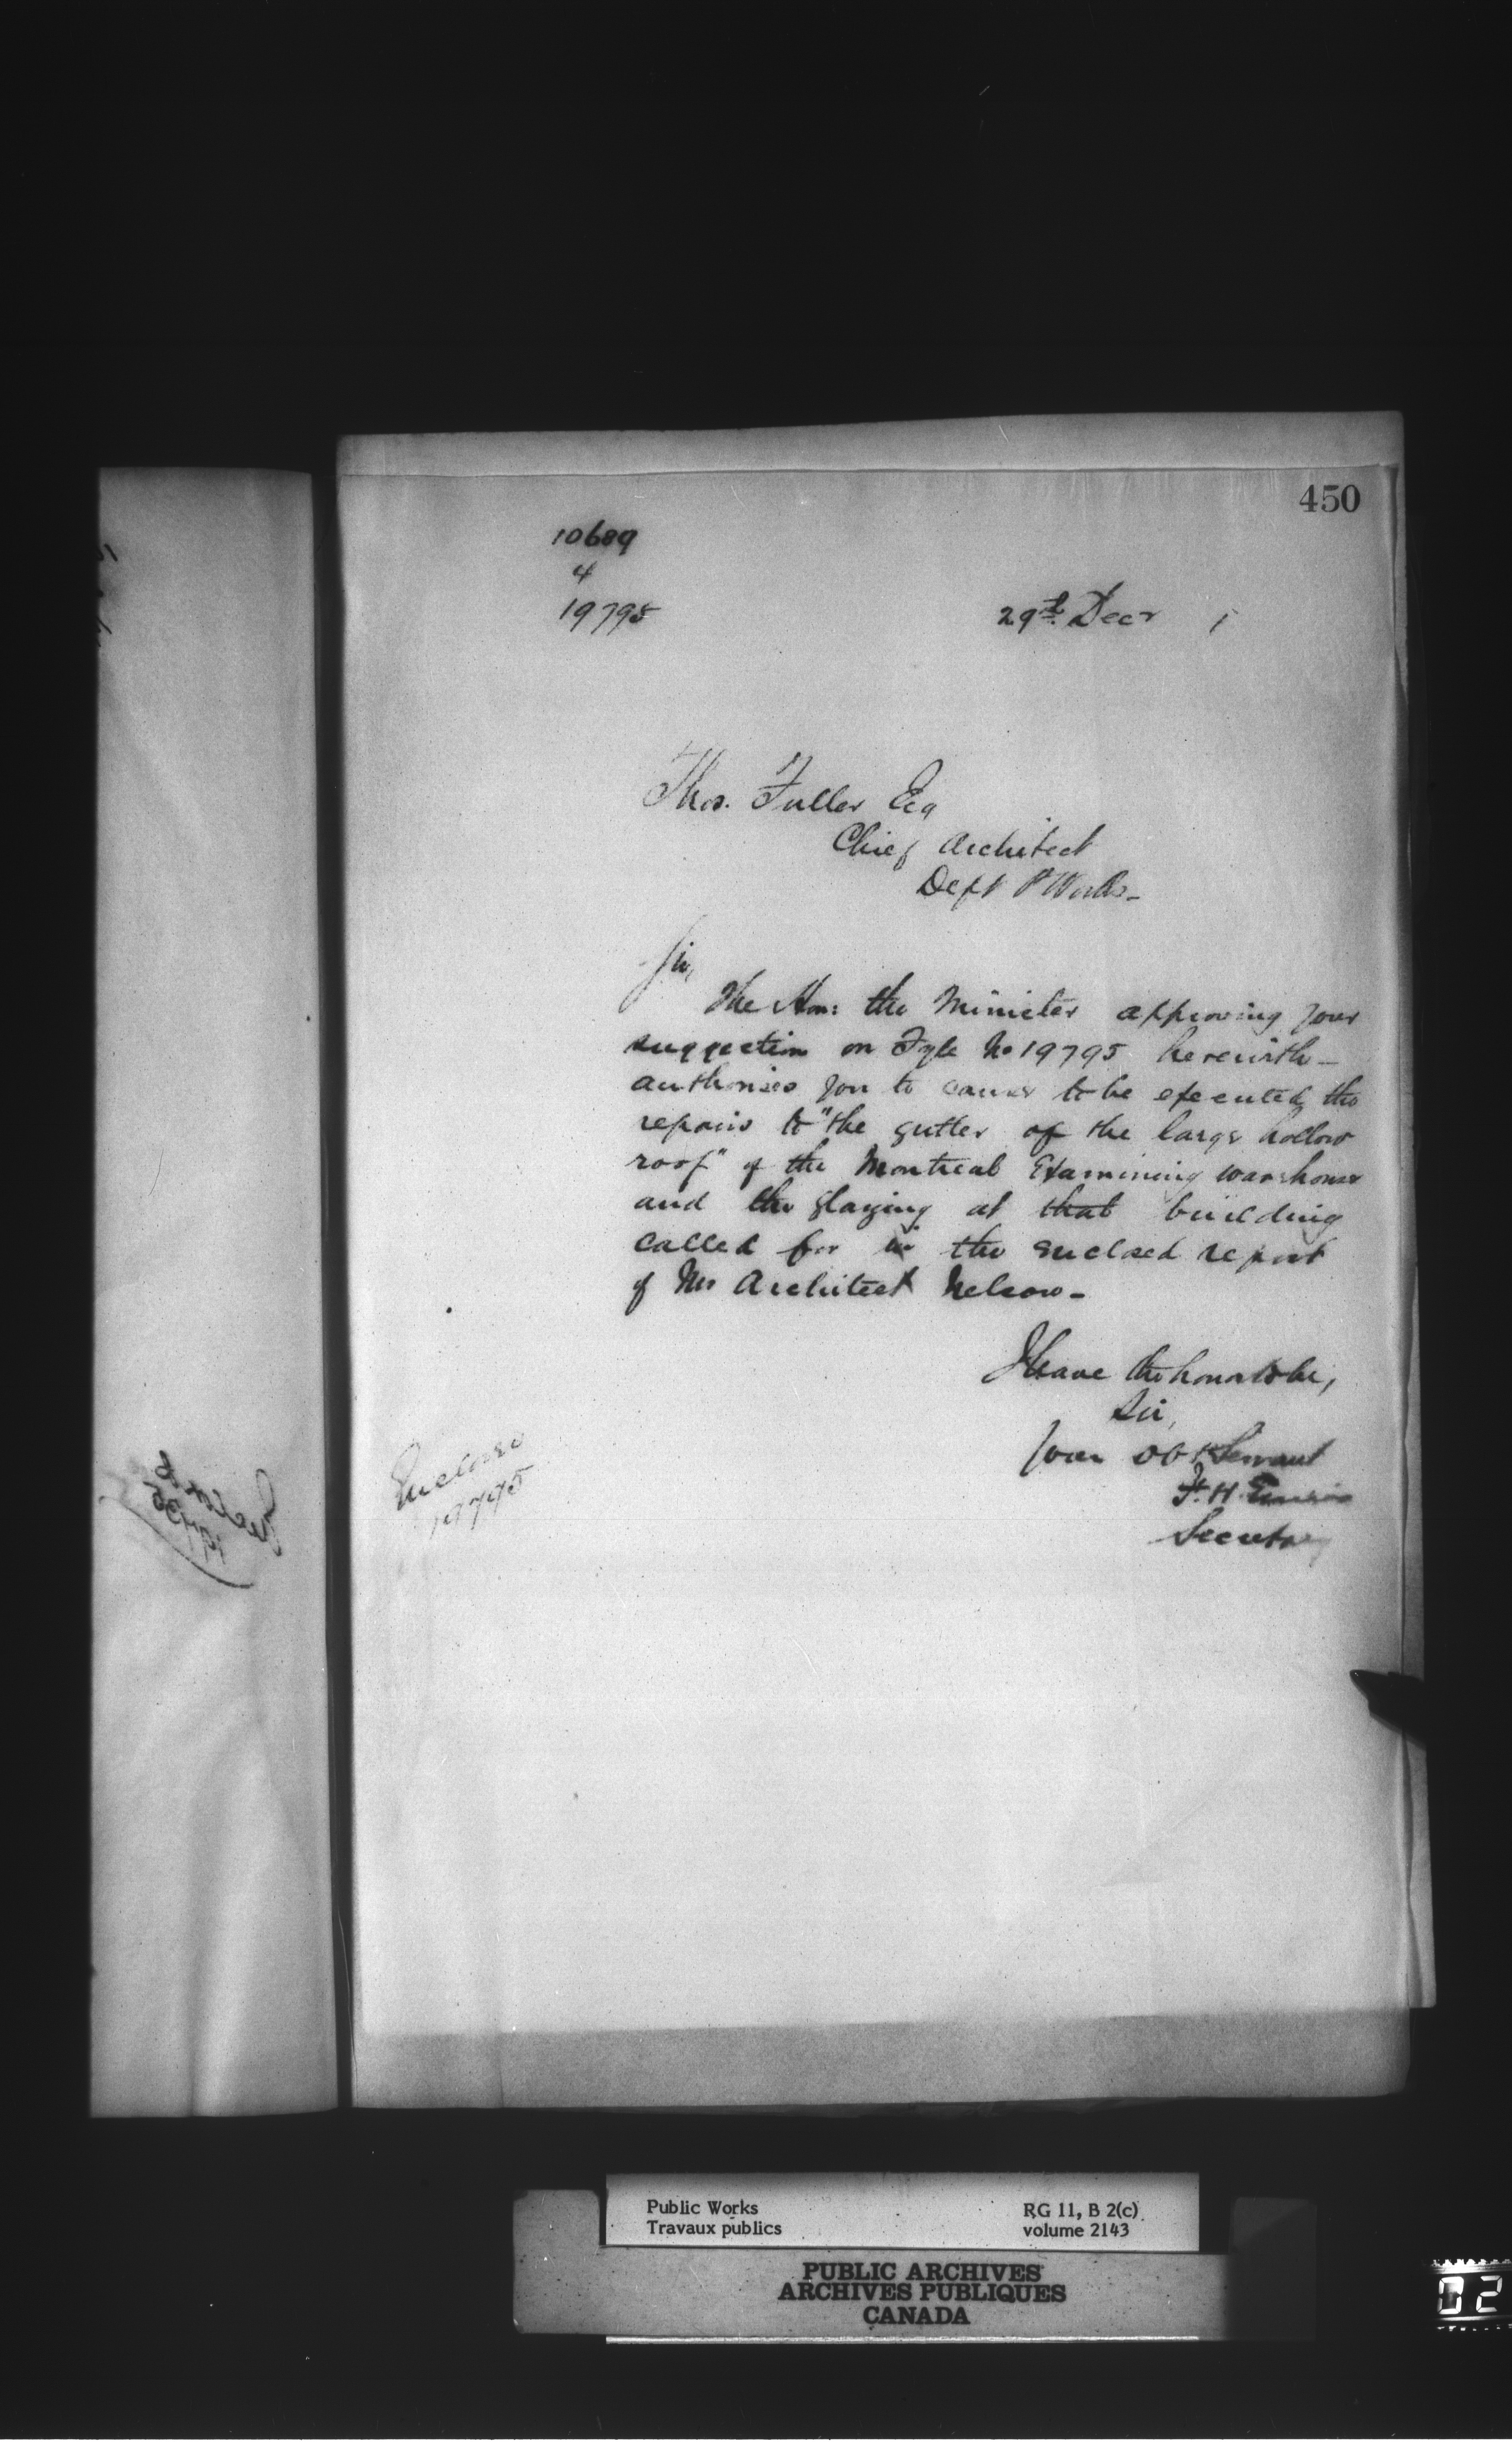 450
10689
4
19795
29th Decr 1
Thos. Fuller Esq
Chief Architect
Dept P Works -
Sir,
The Hon: the Minister approving your
suggestion on Fyle No 19795 herewith -
authorises you to cause to be executed the
repairs to "the gutter of the large hollow
roof" of the Montreal Examining warehouse
and the glazing at that building
called for in the enclosed report
of Mr Architect Nelson -
I have the honor to be,
Sir,
Your Obt Servant
F. H.
Secretary
Enclose
19795
Public Works
Travaux publics
RG 11, B 2(c)
volume 2143
PUBLIC ARCHIVES
ARCHIVES PUBLIQUES
CANADA
02